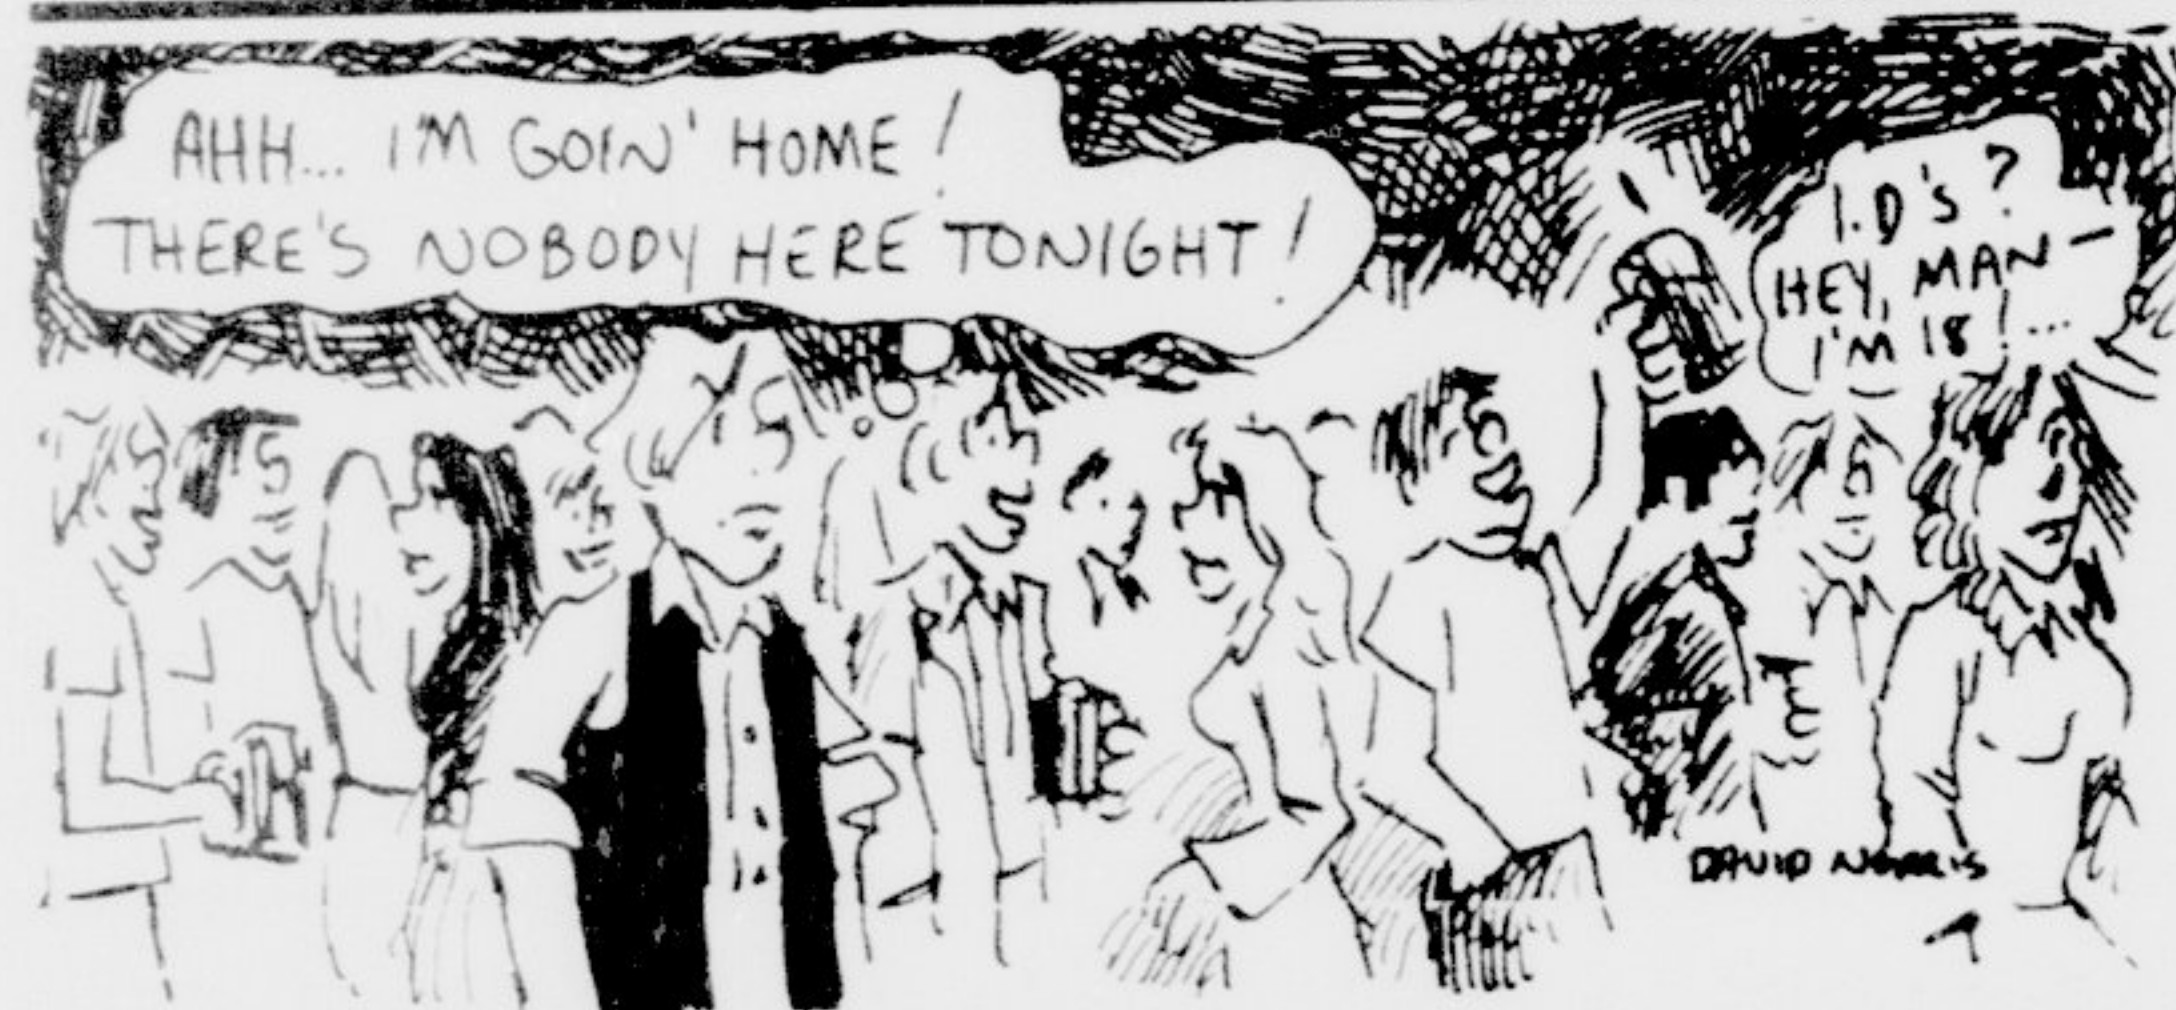 AHH... I'M GOIN' HOME!
THERE'S NOBODY HERE TONIGHT!
I.D'S?
HEY, MAN —
I'M 18!...
DAVID NORRIS